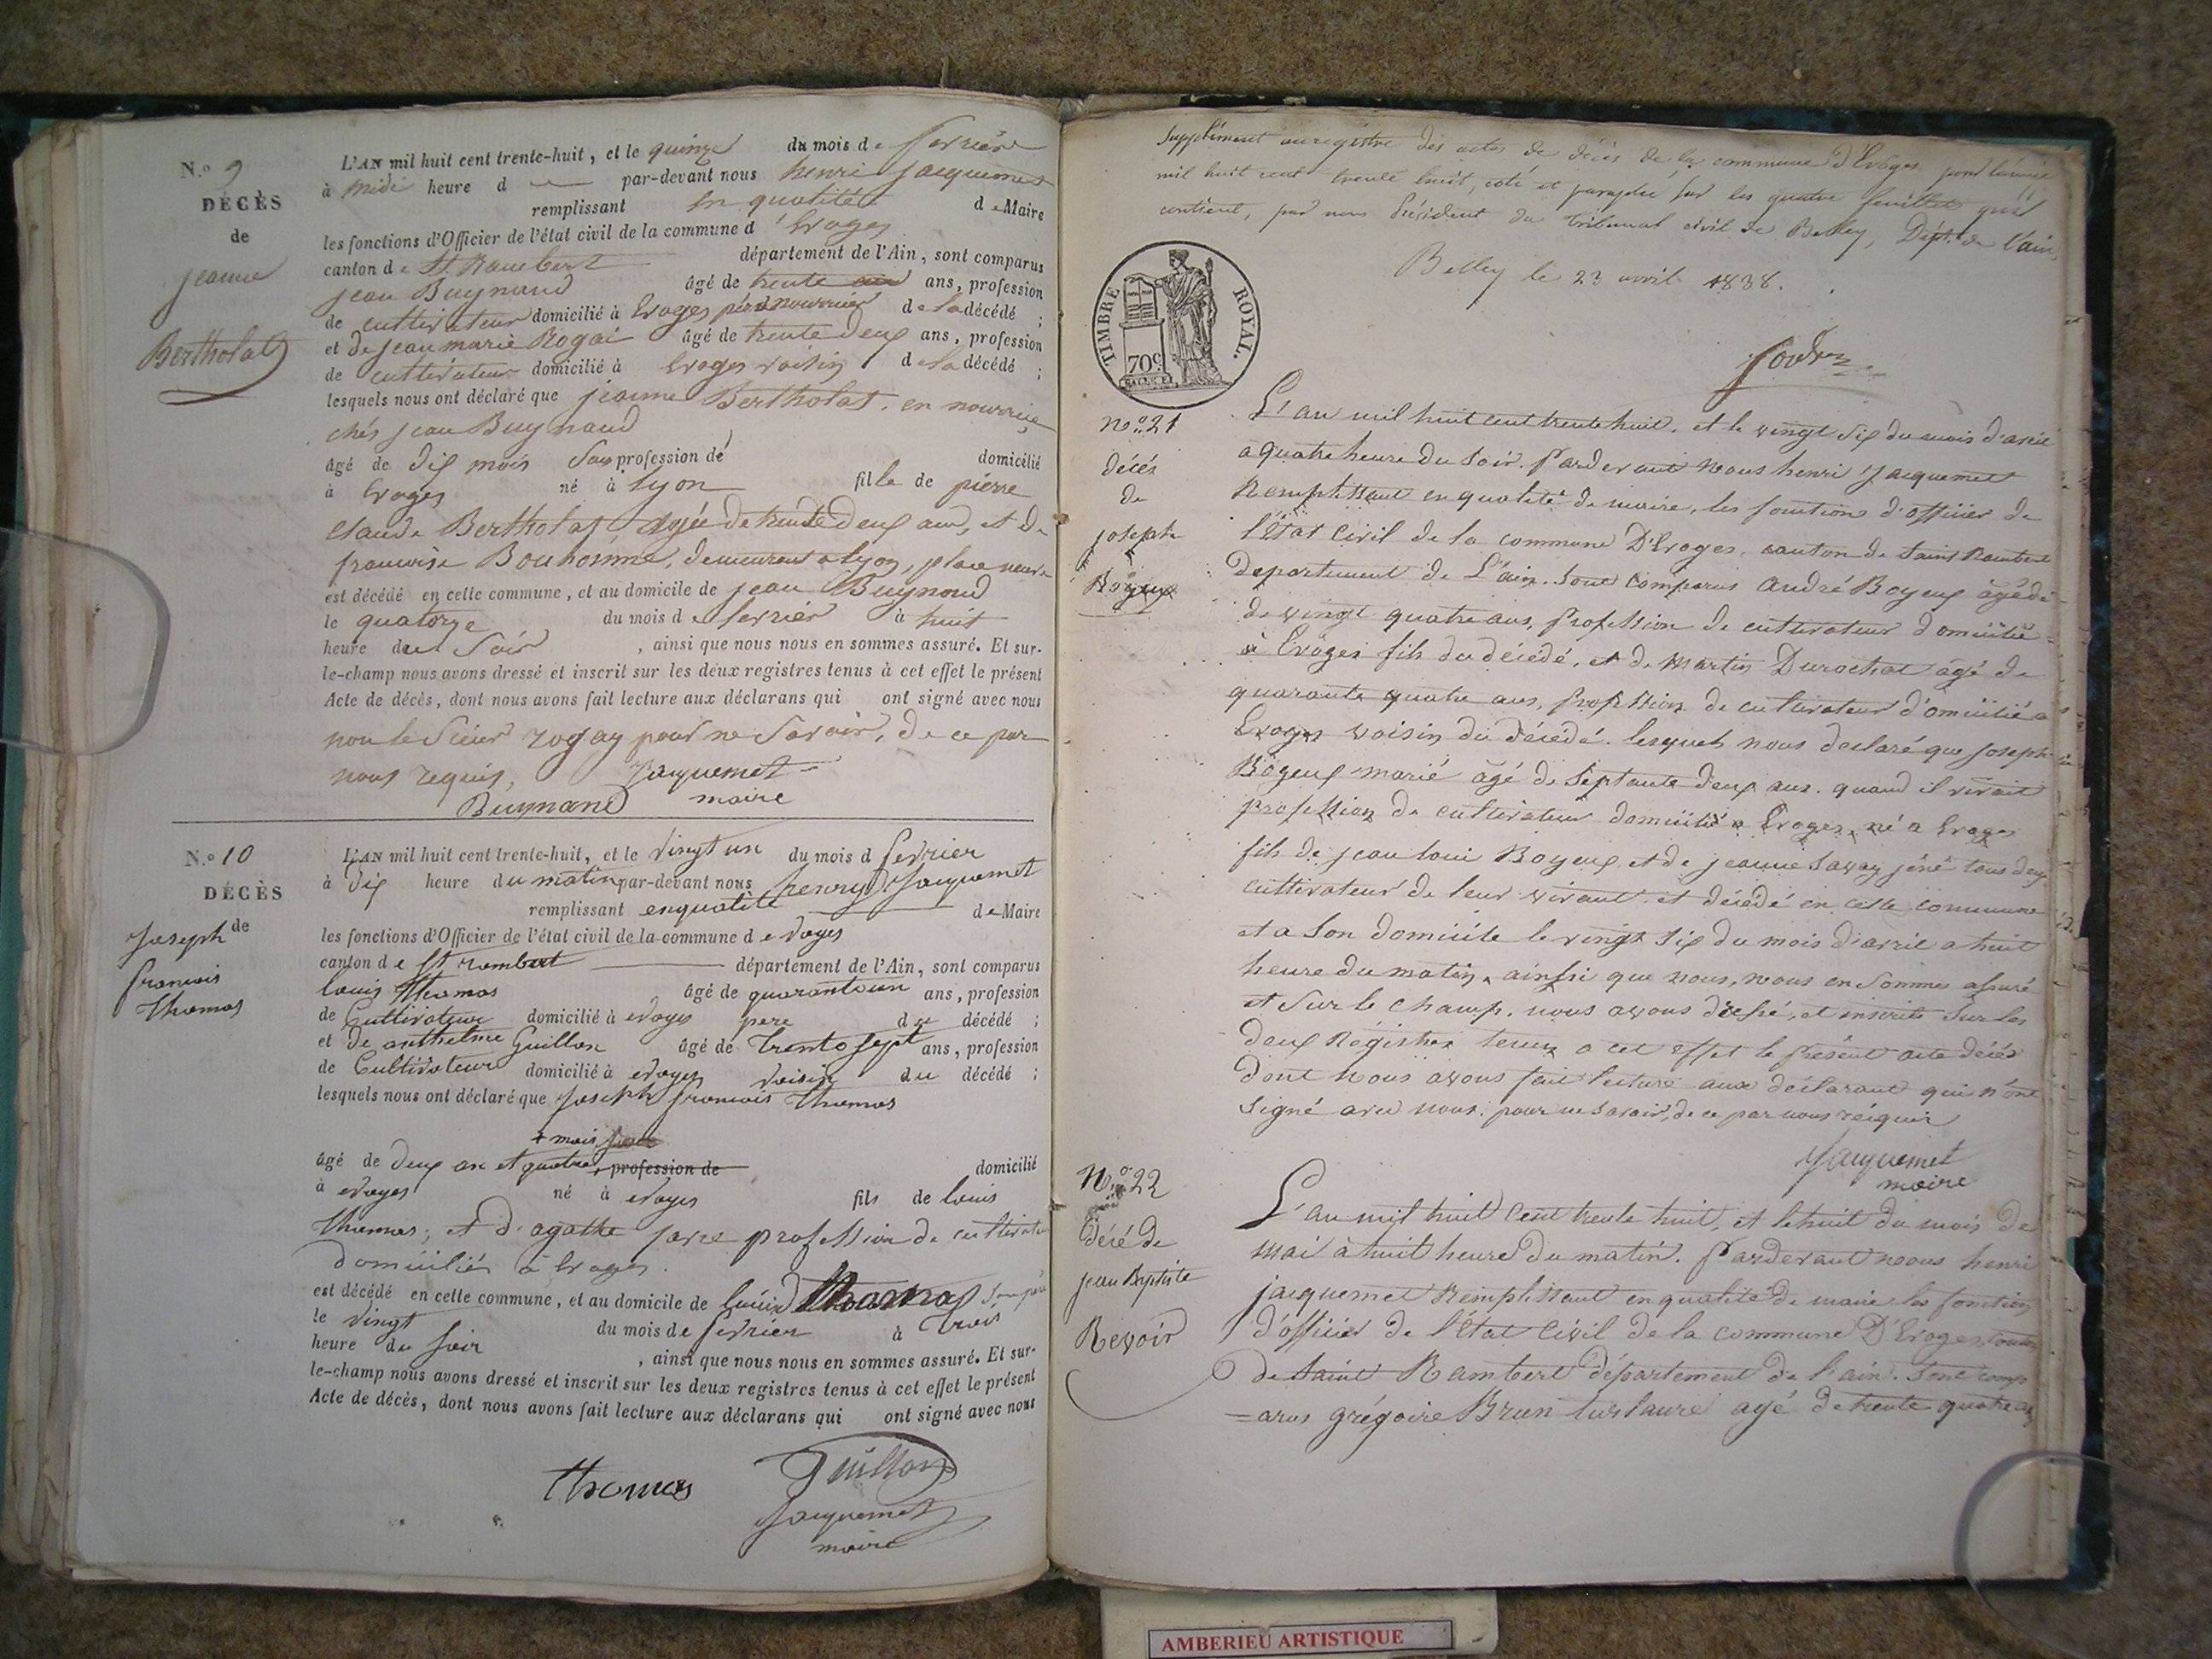 N.o 9
DÉCÈS
de
jeanne
Bertholat
L'AN mil huit cent trente-huit, et le quinze du mois de fevrier
à midi heure d par-devant nous henri jacquemet
remplissant en qualité de Maire
les fonctions d'Officier de l'état civil de la commune d'Evoges
canton de St. Rambert département de l'Ain, sont comparus
jean Buynand âgé de trente ans, profession
de cultivateur domicilié à Evoges père nourricier de la décédé ;
et de jean marie Rogai âgé de trente deux ans, profession
de cultivateur domicilié à Evoges voisin de la décédé ;
lesquels nous ont déclaré que jeanne Bertholat, en nourrice
chés jean Buynand
âgé de dix mois sans profession de domicilié
à Evoges né à lyon fille de pierre
claude Bertholat, agée de trente deux ans, et de
francoise Bonhomme, demeurent a lyon, place neuve
est décédé en cette commune, et au domicile de jean Buynand
le quatorze du mois de fevrier à huit
heure du Soir, ainsi que nous nous en sommes assuré. Et sur-
le-champ nous avons dressé et inscrit sur les deux registres tenus à cet effet le présent
Acte de décès, dont nous avons fait lecture aux déclarans qui ont signé avec nous
non le Sieur rogay pour ne Savoir, de ce par
nous requis, Jacquemet
Buynand maire
N.o 10
DÉCÈS
de
Joseph
francois
Thomas
L'AN mil huit cent trente-huit, et le vingt un du mois d fevrier
à dix heure du matin par-devant nous henry Jacquemet
remplissant enqualité de Maire
les fonctions d'Officier de l'état civil de la commune d evoges
canton de St rambert département de l'Ain, sont comparus
louis Thomas âgé de quarantoun ans, profession
de Cultivateur domicilié à evoges pere du décédé ;
et de anthelme Guillon âgé de trente sept ans, profession
de Cultivateur domicilié à evoges voisin du décédé ;
lesquels nous ont déclaré que Joseph francois Thomas
+ mois
âgé de deux an et quatre + profession de domicilié
à evoges né à evoges fils de louis
Thomas; et d'agathe jarre profession de cultivate
domicilies à Evoges.
est décédé en cette commune, et au domicile de louis Thomas Son père
le vingt du mois de fevrier à trois
heure du soir, ainsi que nous nous en sommes assuré. Et sur-
le-champ nous avons dressé et inscrit sur les deux registres tenus à cet effet le présent
Acte de décès, dont nous avons fait lecture aux déclarans qui ont signé avec nous
Thomas Guillon
Jacquemet
maire
Supplément au registre des actes de décès de la commune d'Evoges pour l'année
mil huit cent trente huit, coté et paraphé sur les quatre feuillets qu'il
contient, par nous Président du Tribunal civil de Belley, Dépt. de l'ain,
Belley le 23 avril 1838.
TIMBRE ROYAL.
70c
no. 21
décés
de
joseph
Boyeux
L'an mil huit cent trente huit, et le vingt six du mois d'avril
a quatre heure du Soir. Pardevant nous henri jacquemet
Remplissant en qualité de maire, les fonctions d'officier de
l'Etat Civil de la commune D'Evoges, canton de Saint Rambert
Departement de L'ain. Sont comparus andré Boyeux âgé de
de vingt quatre ans, profession de cultivateur domicilié
à Evoges fils du décédé, et de martin Durochat âgé de
quarante quatre ans, profession de cultivateur d'omicilié a
Evoges voisin du décédé. lesquels nous declaré que joseph
Boyeux marié âgé de Septante deux ans. quand il vivait
profession de cultivateur domicilié a Evoges, né a Evoges
fils de jean loui Boyeux et de jeanne Savay jéné tous deux
cultivateur de leur vivant. et décédé en cette commune
et a Son domicile le vingt six du mois d'avril a huit
heure du matin, ainssi que nous, nous en Sommes assuré
et Sur le champ, nous avons dressé, et inscrits Sur les
deux Régistres tenus a cet effet le présent acte décés
dont nous avons fait lecture aux déclarant qui n'ont
Signé avec nous; pour ne Savoir, de ce par nous réquis
Jacquemet
maire
No. 22
Décé de
jean Baptiste
Revoir
L'an mil huit cent trente huit, et le huit du mois de
mai à huit heure du matin. Pardevant nous henri
jacquemet Remplissant en qualité de maire les fonctions
d'officier de l'Etat Civil de la commune D'Evoges canton
de Saint Rambert département de l'ain. Sont comp
=arus grégoire Brun agé de trente quatre ans
AMBERIEU ARTISTIQUE